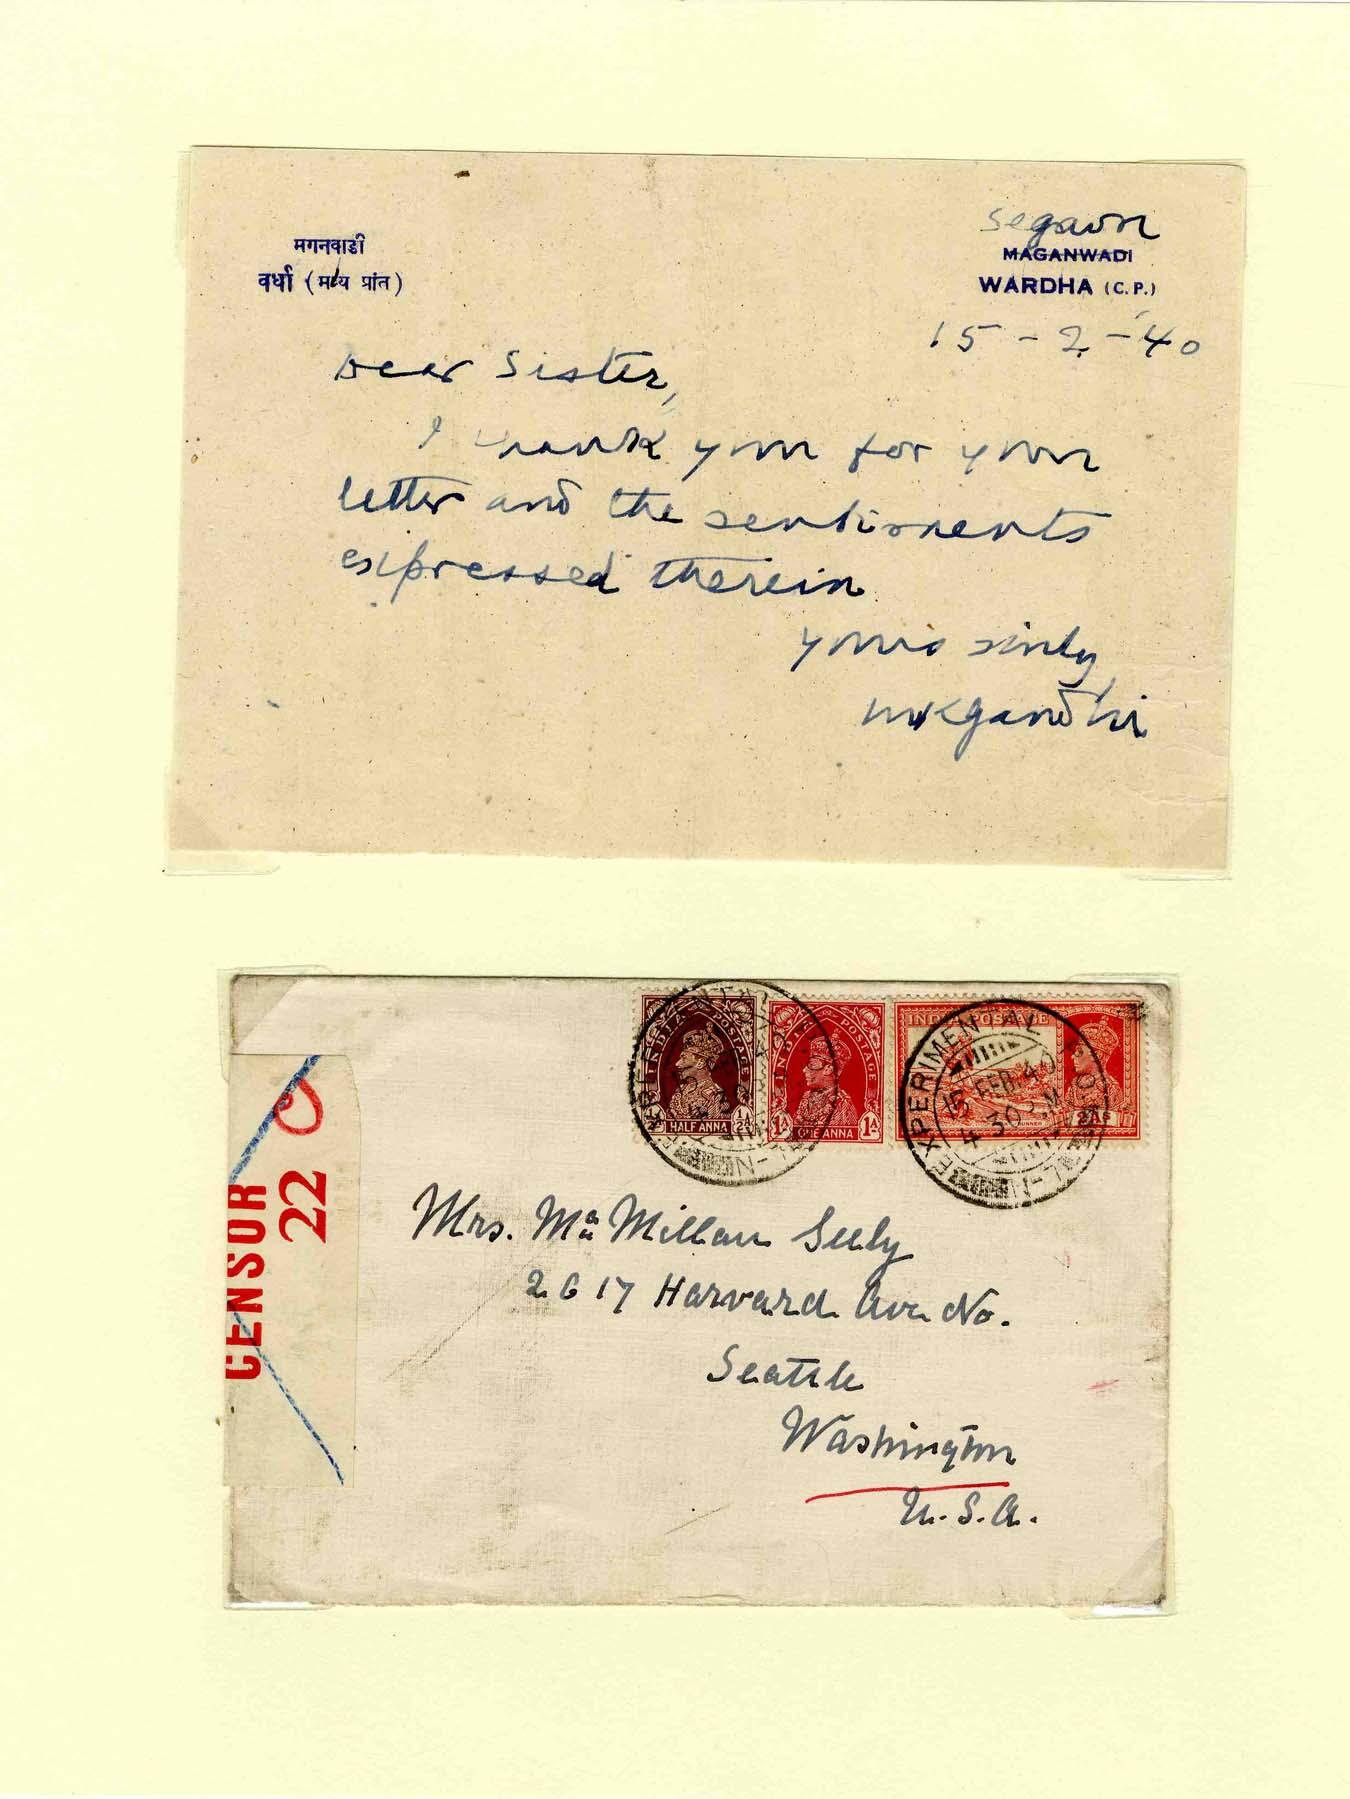 मगनवाडी
वर्धा (मध्य प्रांत)
Segaon
MAGANWADI
WARDHA (C.P.)
15-2-'40
Dear Sister,
I thank you for your
letter and the sentiments
expressed therein
yours sinly
MKGandhi
INDIA POSTAGE
HALF ANNA ½A
INDIA POSTAGE
1A ONE ANNA 1A
INDIA POSTAGE
2As
EXPERIMENTAL P.O.
15 FEB. 40
4 30 P.M
CENSOR
22
Mrs. Mac Millan Seely
2617 Harvard Ave No.
Seattle
Washington
U.S.A.